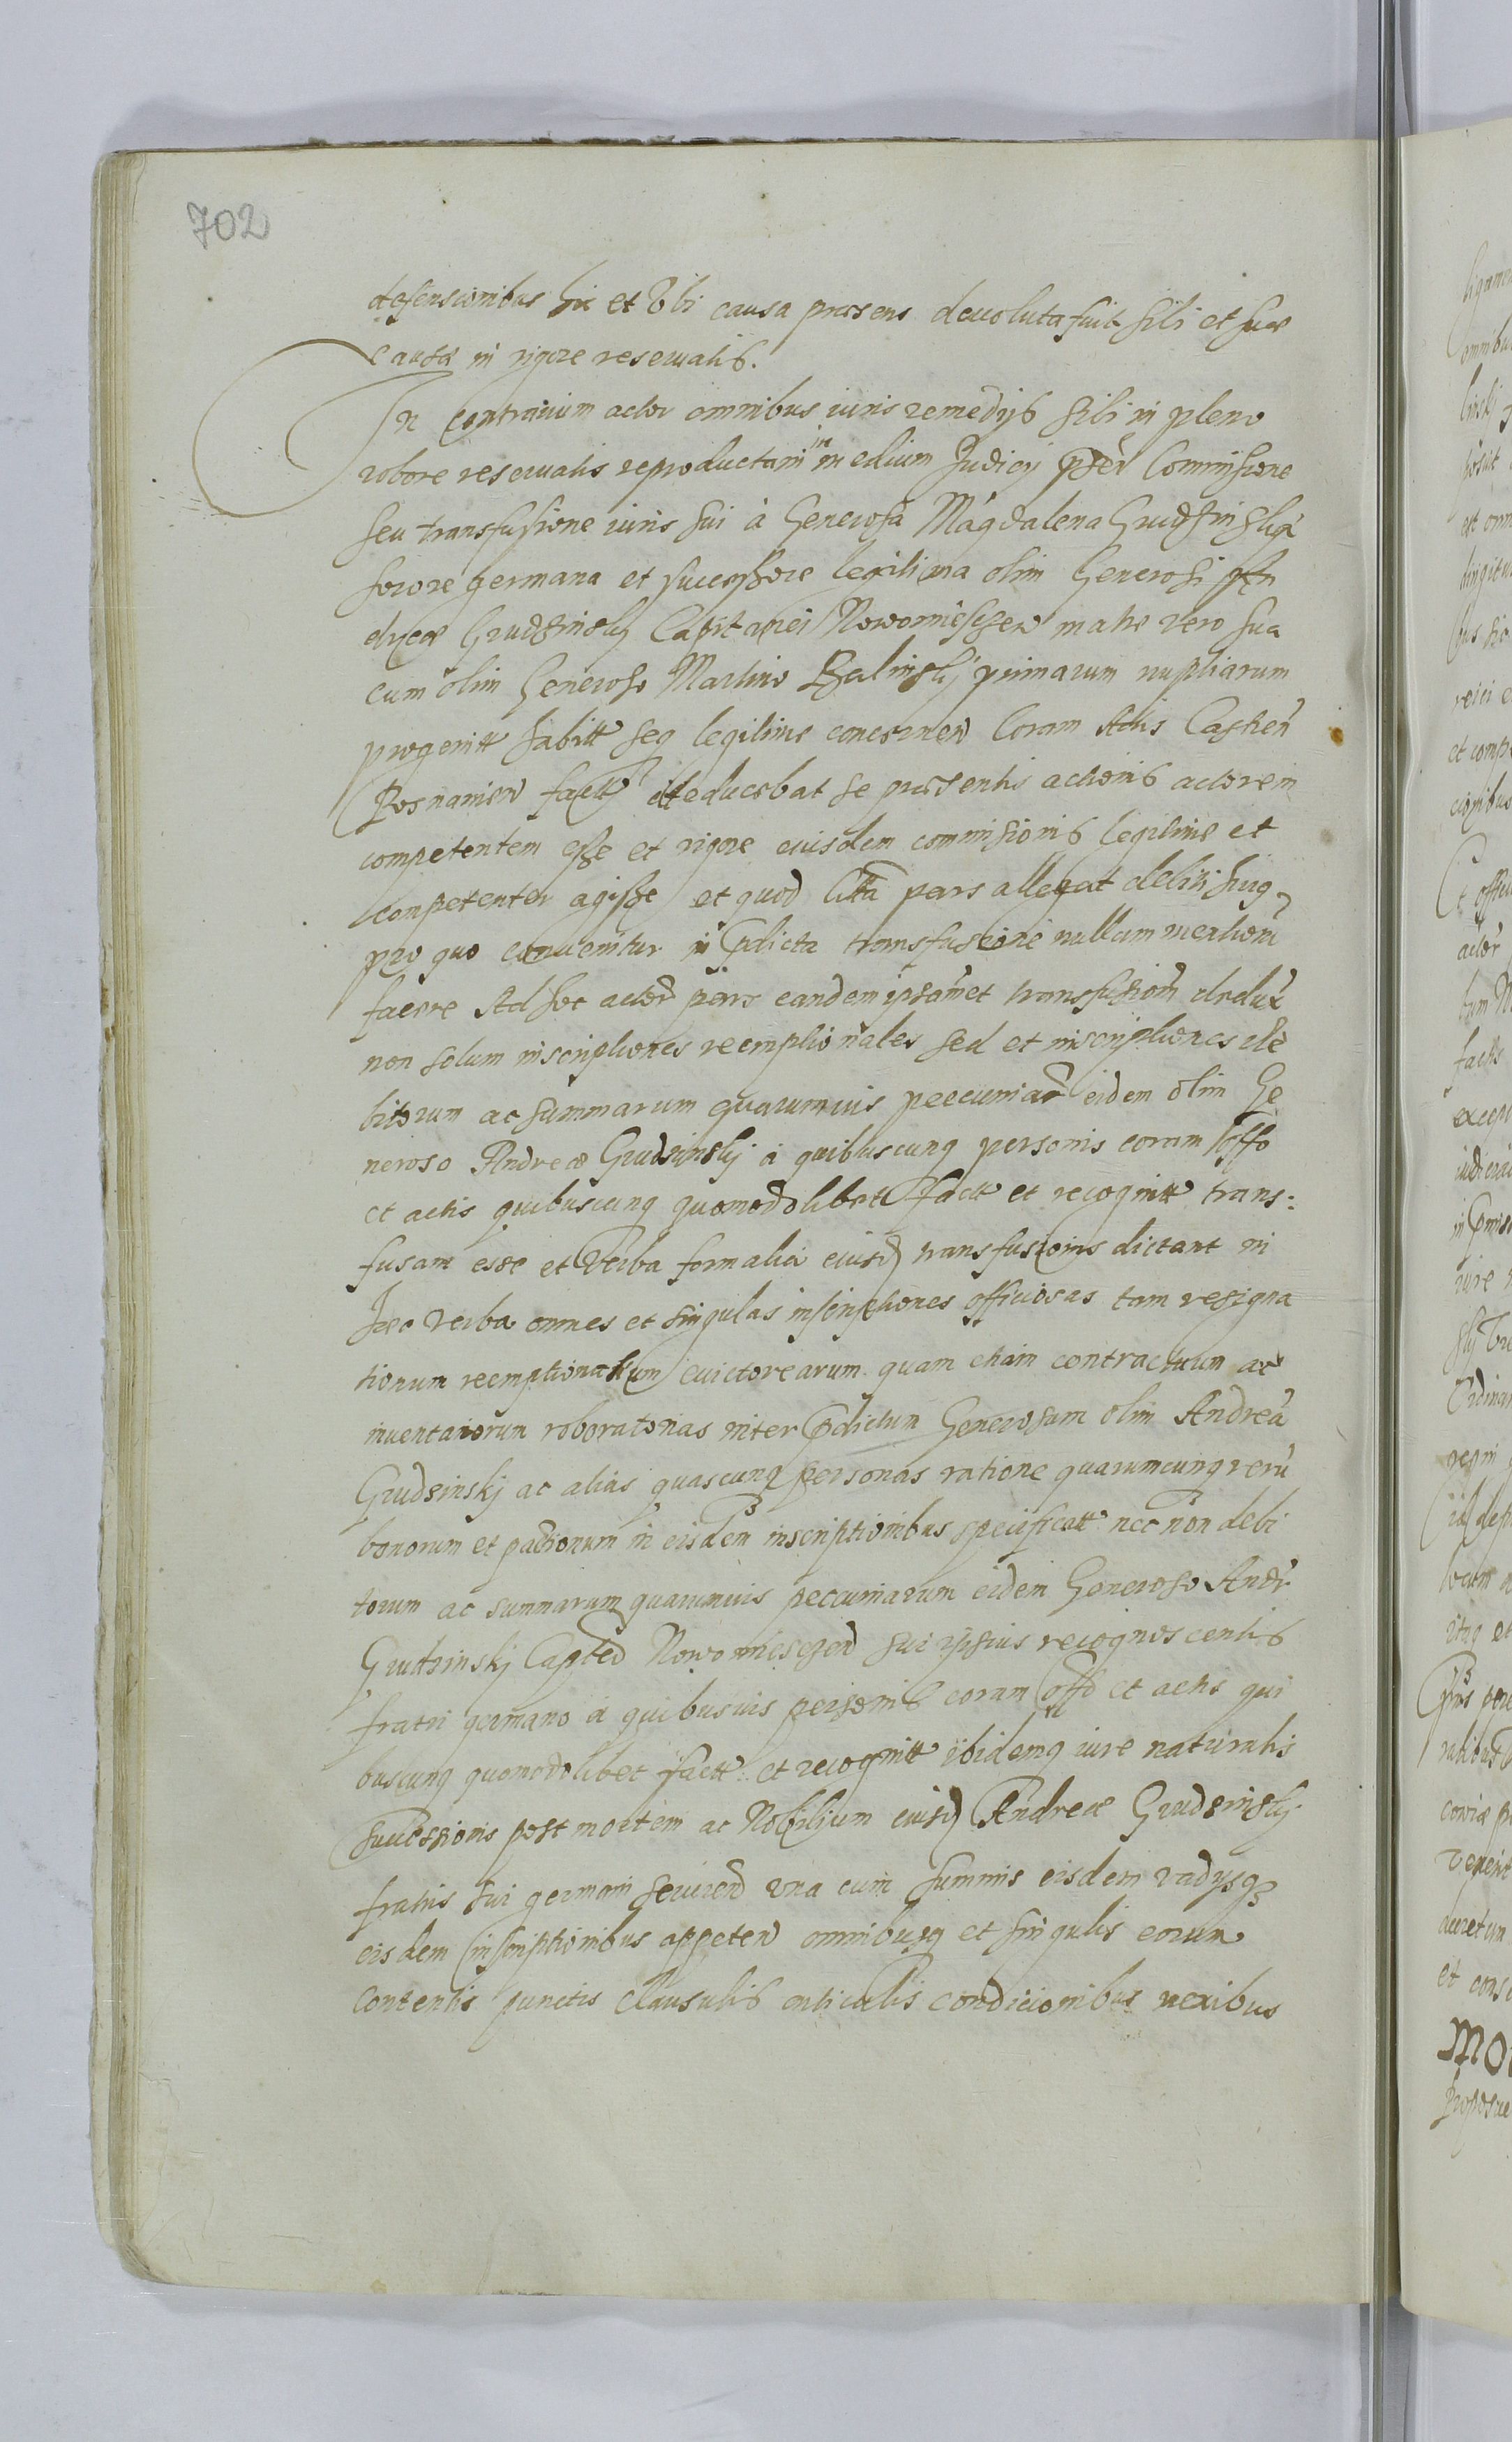 702
defensionibus hic et Vbi causa præsens deuoluta fuit sibi et suæ
causæ in rigore reseruatis.
In contrarium actor omnibus iuris remedijs sibi in pleno
robore reseruatis reproductam in medium Judicij Commissione
seu transfusione iuris sui à Generosa Magdalena Grudzinska
sorore germana et successore legitima olim Generosi An
dreæ Grudzinskj Capitanei Nowomiescen matre vero sua
cum olim Generoso Martino Balinskj primarum nuptiarum
progenitt habitt se legitime concernen Coram Actis Castren
Posnanien factt deducebat se præsentis actionis actorem
competentem esse et rigore eiusdem commissionis legitime et
competenter agisse et quod Citta pars allegat debiti huiq
pro quo conuenitur in pdicta transfusione nullam mentionem
facere Ad hoc actor pars eandem ipsamet transfusionem
non solum inscriptiones reemptionales sed et inscriptiones de
bitorum ac summarum quarumuis peecuniar eidem olim Ge
neroso Andreæ Grudzinskj à quibuscunq personis coram offo
et actis quibuscunq quomodolibett factt et recognitt trans:
fusam esse et Verba formalia eiusd transfusionis dictant in
hæc verba omnes et singulas inscriptiones officiosas tam resigna
tionum reemptionalium euictorearum quam etiam contractuum ac
inuentariorum roboratorias inter pdictum Generosum olim Andrea
Grudzinskj ac alias quascunq personas ratione quarumcunq reru
bonorum et pactionum in eisdem inscriptionibus specificatt nec non debi
torum ac summarum quarumuis peccuniarum eidem Generoso Andr
Grudzinskj Capteo Nowomiescen sui ipsius recognoscentis
fratri germano à quibusuis personis coram offo et actis qui
buscunq quomodolibet factt et recognitt ibidemq iure naturalis
successionis post mortem ac Nobilium eiusd Andreæ Grudzinskj
fratris sui germani seruien vna cum summis eisdem vadysq
eisdem inscriptionibus appeten omnibusq et singulis eorum
contentis punctis clausulis articulis condicionibus nexibus